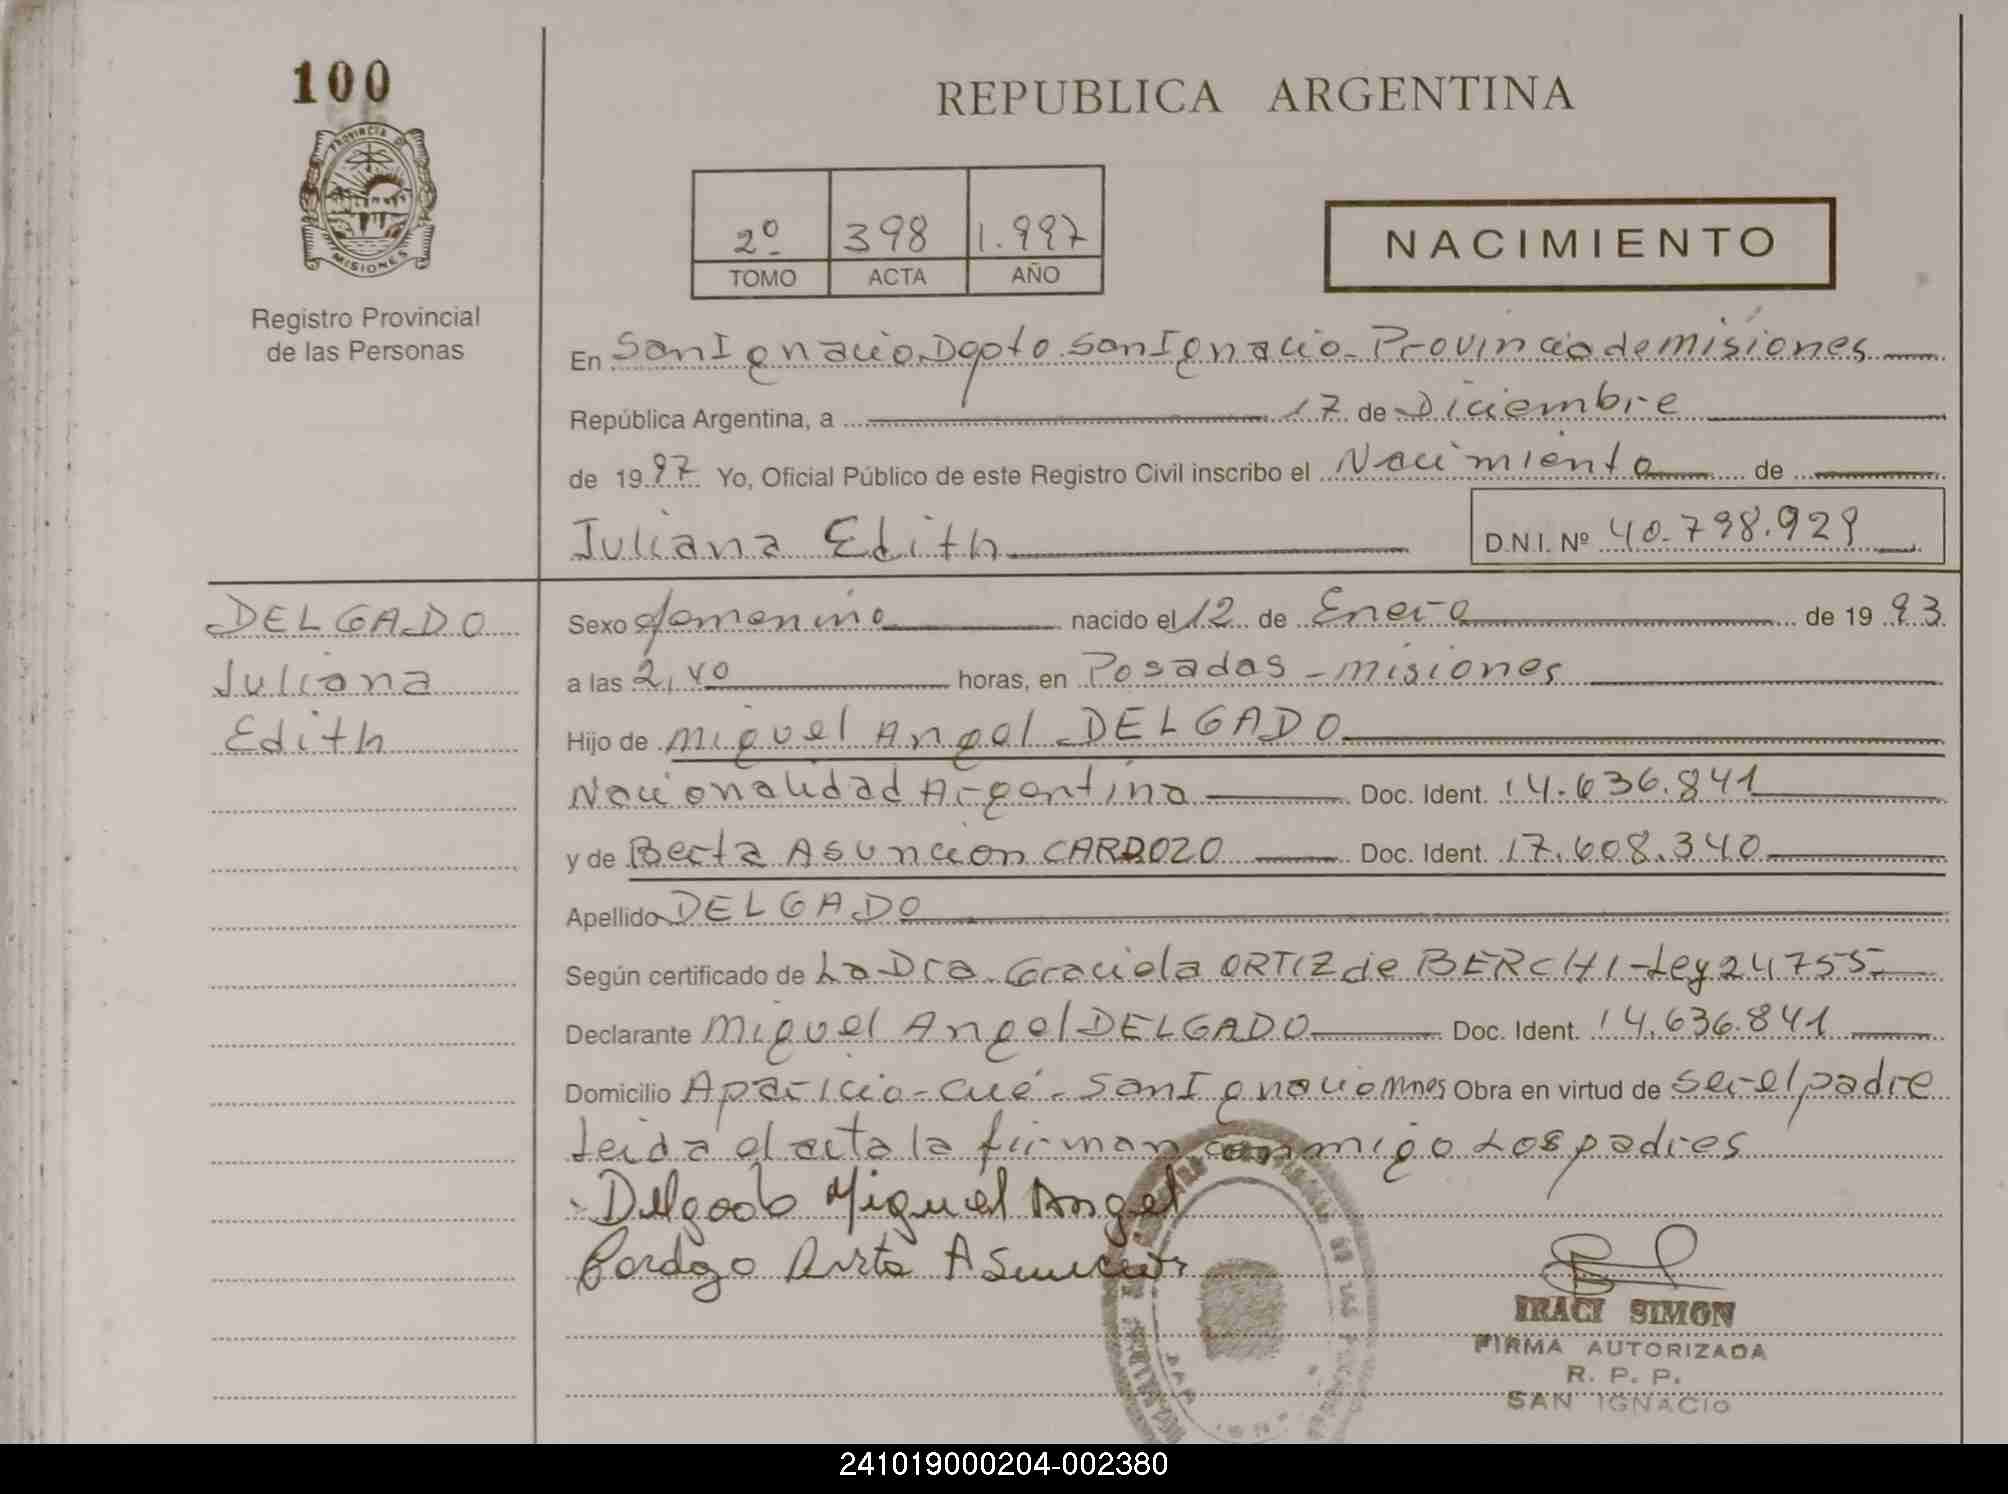 100
PROVINCIA D
MISIONES
Registro Provincial
de las Personas
REPUBLICA ARGENTINA
2º 398 1.997
TOMO ACTA AÑO
NACIMIENTO
En San Ignacio Dpto San Ignacio - Provincia de misiones
República Argentina, a 17 de Diciembre
de 1997 Yo, Oficial Público de este Registro Civil inscribo el Nacimiento de
Juliana Edith
D.N.I. Nº 40.798.929
DELGADO
Juliana
Edith
Sexo femenino nacido el 12 de Enero de 1993
a las 2,40 horas, en Posadas - misiones
Hijo de Miguel Angel DELGADO
Nacionalidad Argentina Doc. Ident. 14.636.841
y de Berta Asuncion CARDOZO Doc. Ident. 17.608.340
Apellido DELGADO
Según certificado de La Dra. Graciela ORTIZ de BERCHI - Ley 24755-
Declarante Miguel Angel DELGADO Doc. Ident. 14.636.841
Domicilio Aparicio - Cué - San Ignacio Mnes Obra en virtud de ser el padre
Leida el acta la firman conmigo Los padres
Delgado Miguel Angel
Cardozo Berta Asuncion
IRACI SIMON
FIRMA AUTORIZADA
R. P. P.
SAN IGNACIO
241019000204-002380